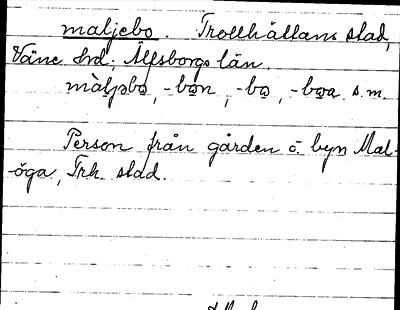 maljebo. Trollhättans stad,
Väne hrd, Älfsborgs län.
màljəbo, -bon, -bo, -boa s.m.
Person från gården o. byn Mal-
öga, Trh. stad.